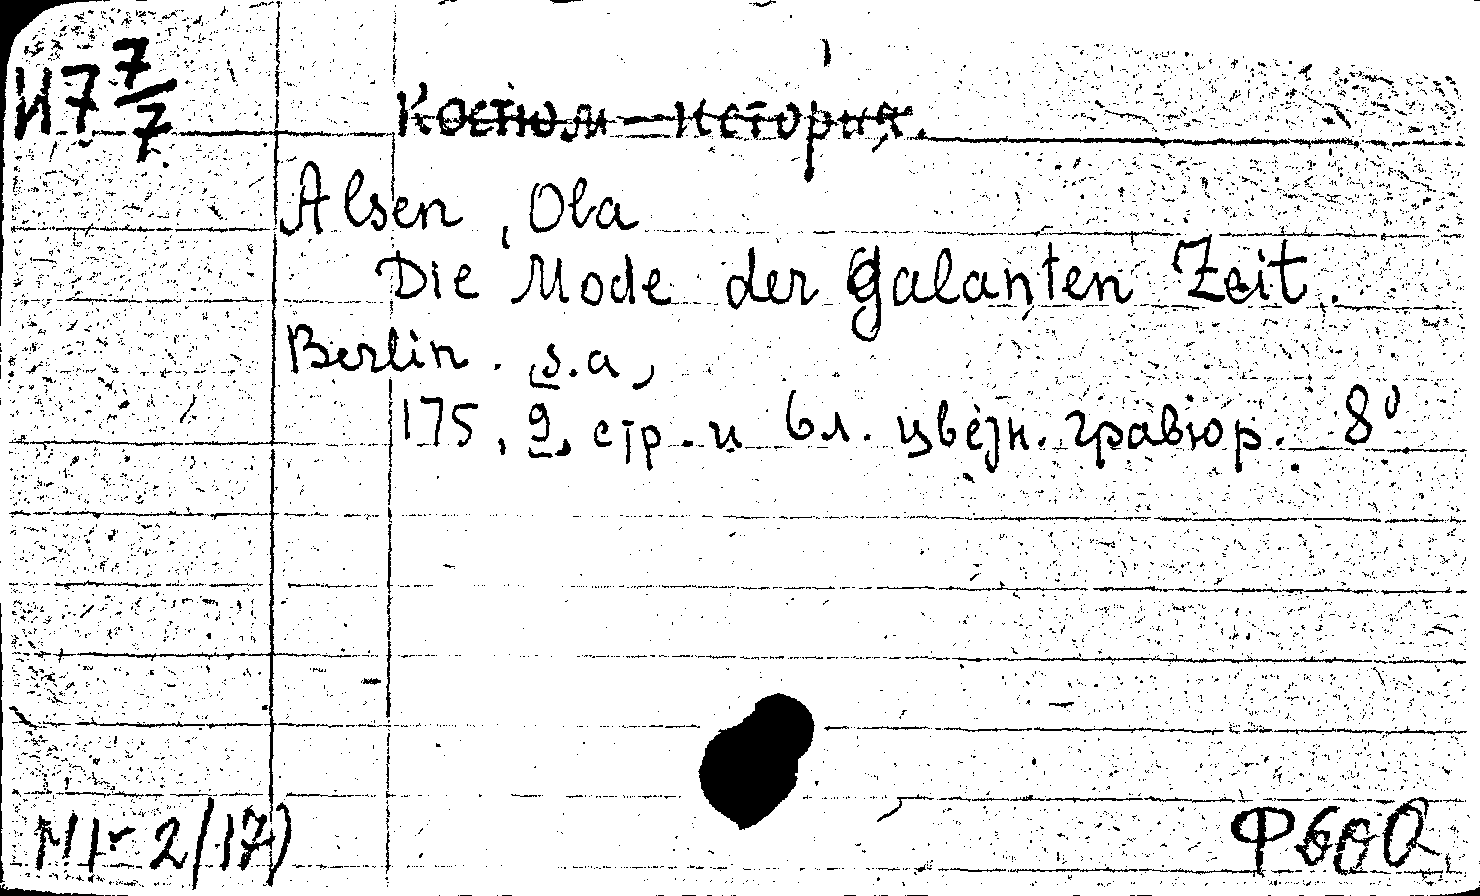 И7 7/7
Костюм – история.
Alsen, Ola
Die Mode der galanten Zeit.
Berlin. s.a,
175, 9, стр. и 6 л. цветн. гравюр. 8°